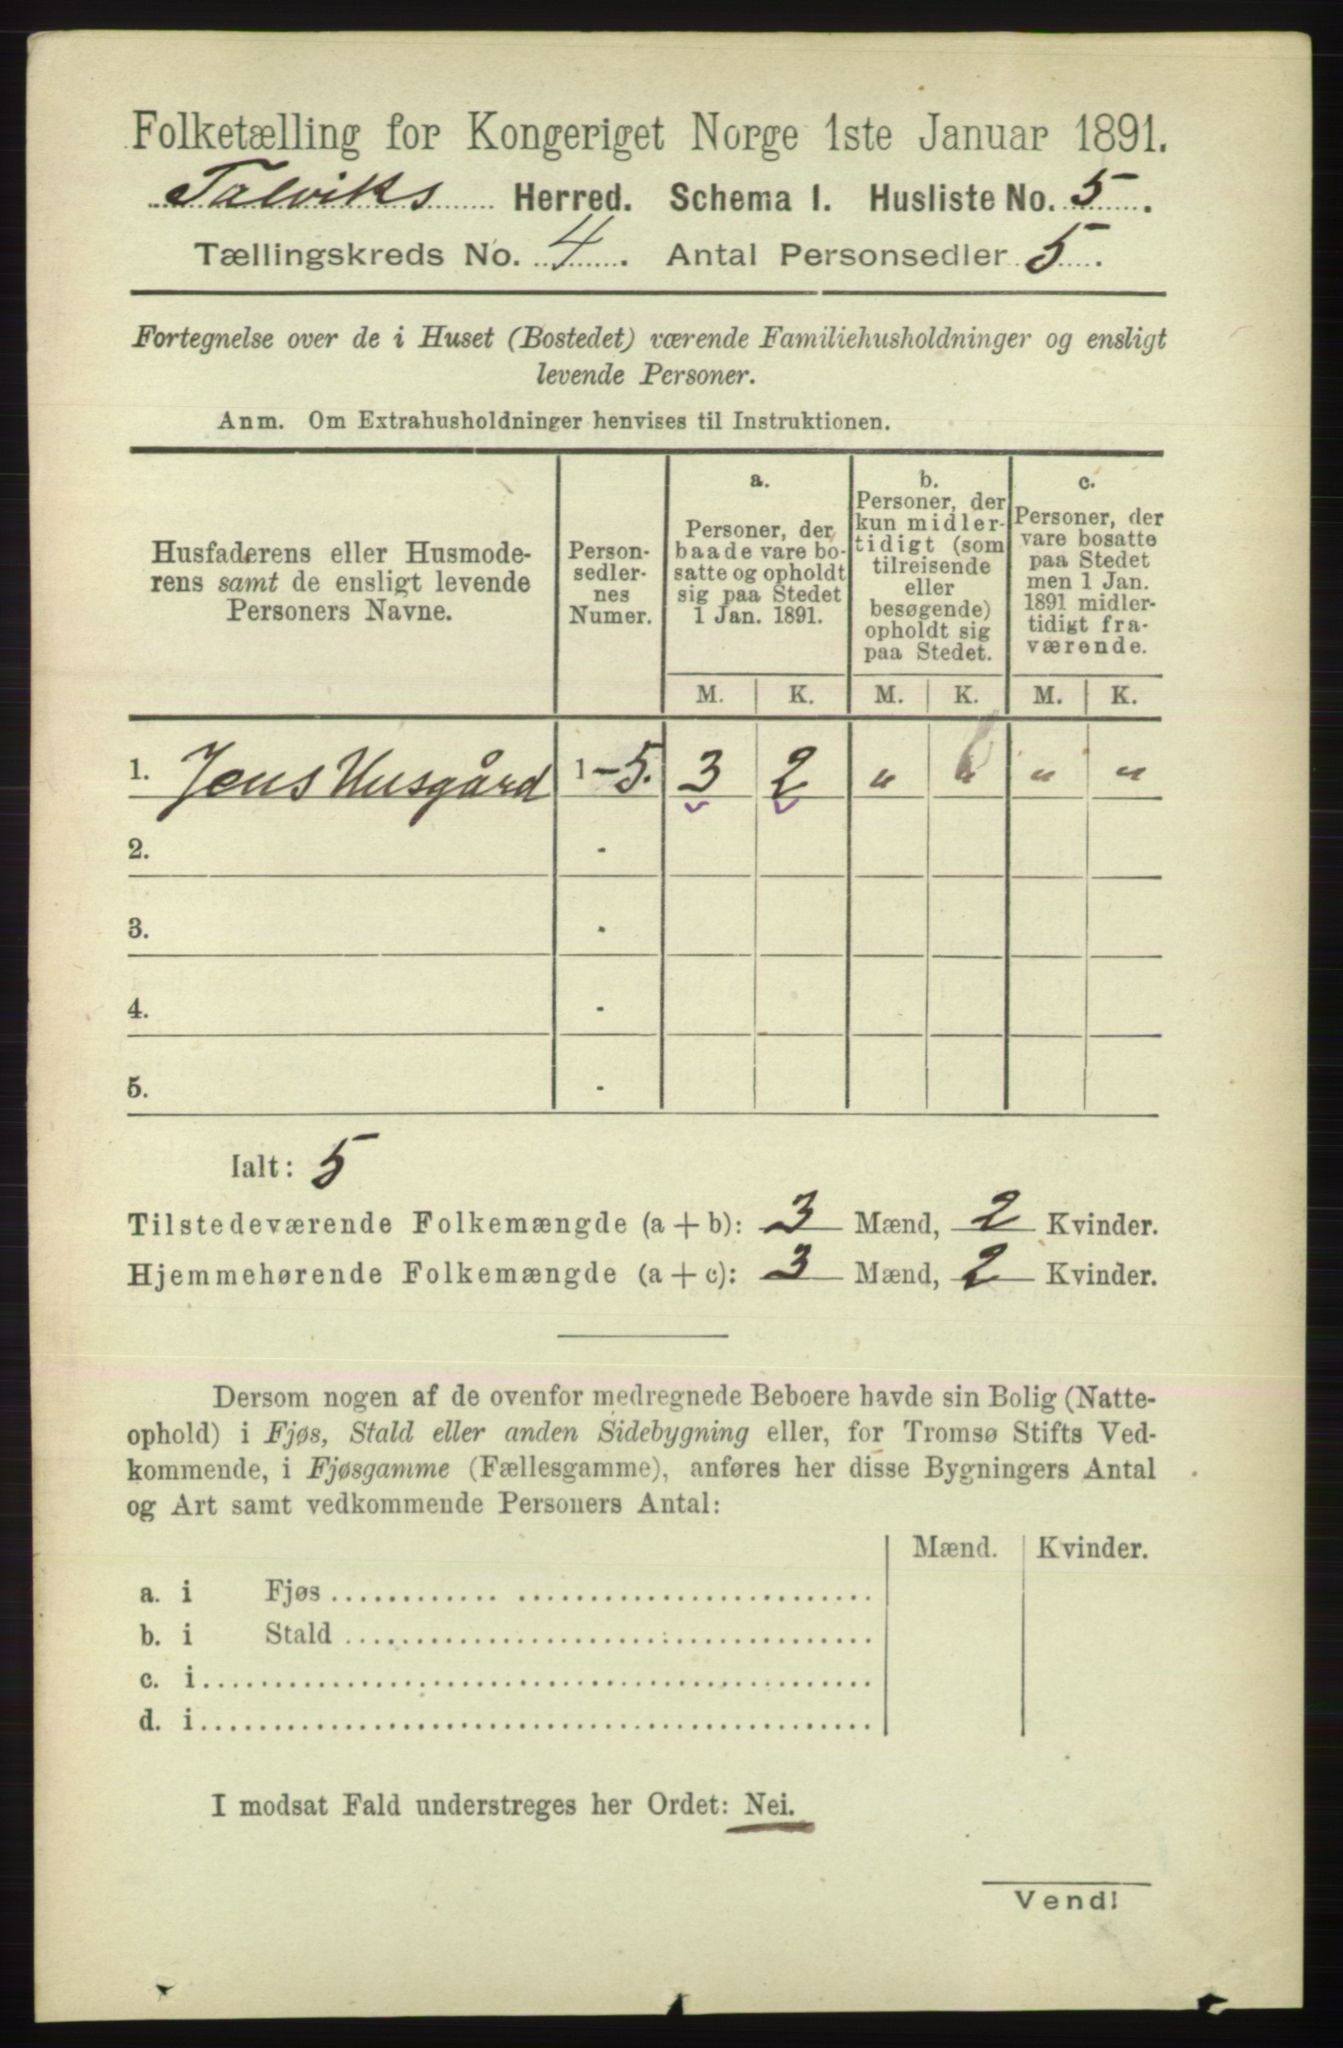 Folketælling for Kongeriget Norge 1ste Januar 1891.
Talviks Herred. Schema I. Husliste No. 5.
Tællingskreds No. 4. Antal Personsedler 5.
Fortegnelse over de i Huset (Bostedet) værende Familiehusholdninger og ensligt
levende Personer.
Anm. Om Extrahusholdninger henvises til Instruktionen.
Husfaderens eller Husmode-
rens samt de ensligt levende
Personers Navne.
Person-
sedler-
nes
Numer.
a.
Personer, der
baade vare bo-
satte og opholdt
sig paa Stedet
1 Jan. 1891.
b.
Personer, der
kun midler-
tidigt (som
tilreisende
eller
besøgende)
opholdt sig
paa Stedet.
c.
Personer, der
vare bosatte
paa Stedet
men 1 Jan.
1891 midler-
tidigt fra-
værende.
M. K. M. K. M. K.
1. Jens Husgård 1-5. 3 2 " " " "
2. -
3. -
4. -
5. -
Ialt: 5
Tilstedeværende Folkemængde (a + b): 3 Mænd, 2 Kvinder.
Hjemmehørende Folkemængde (a + c): 3 Mænd, 2 Kvinder.
Dersom nogen af de ovenfor medregnede Beboere havde sin Bolig (Natte-
ophold) i Fjøs, Stald eller anden Sidebygning eller, for Tromsø Stifts Ved-
kommende, i Fjøsgamme (Fællesgamme), anføres her disse Bygningers Antal
og Art samt vedkommende Personers Antal:
Mænd. Kvinder.
a. i Fjøs
b. i Stald
c. i
d. i
I modsat Fald understreges her Ordet: Nei.
Vend!